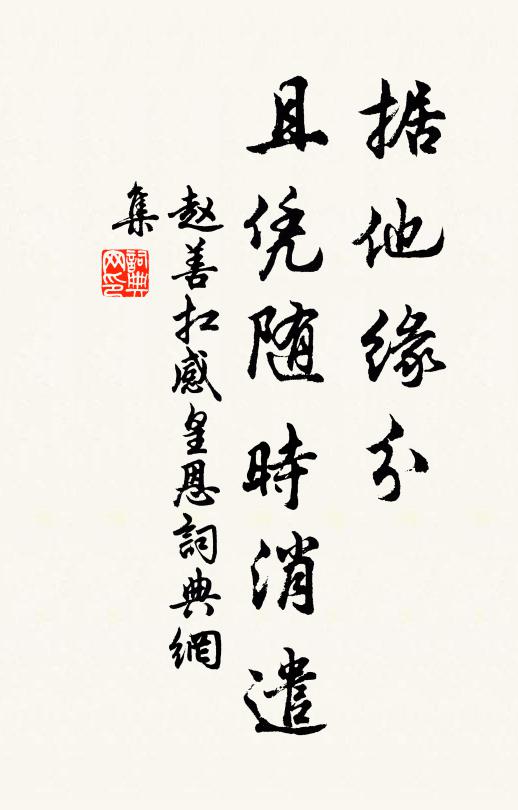 据他缘分
且凭随時消遣
赵善扛感皇恩詞典網
集
詞典網印